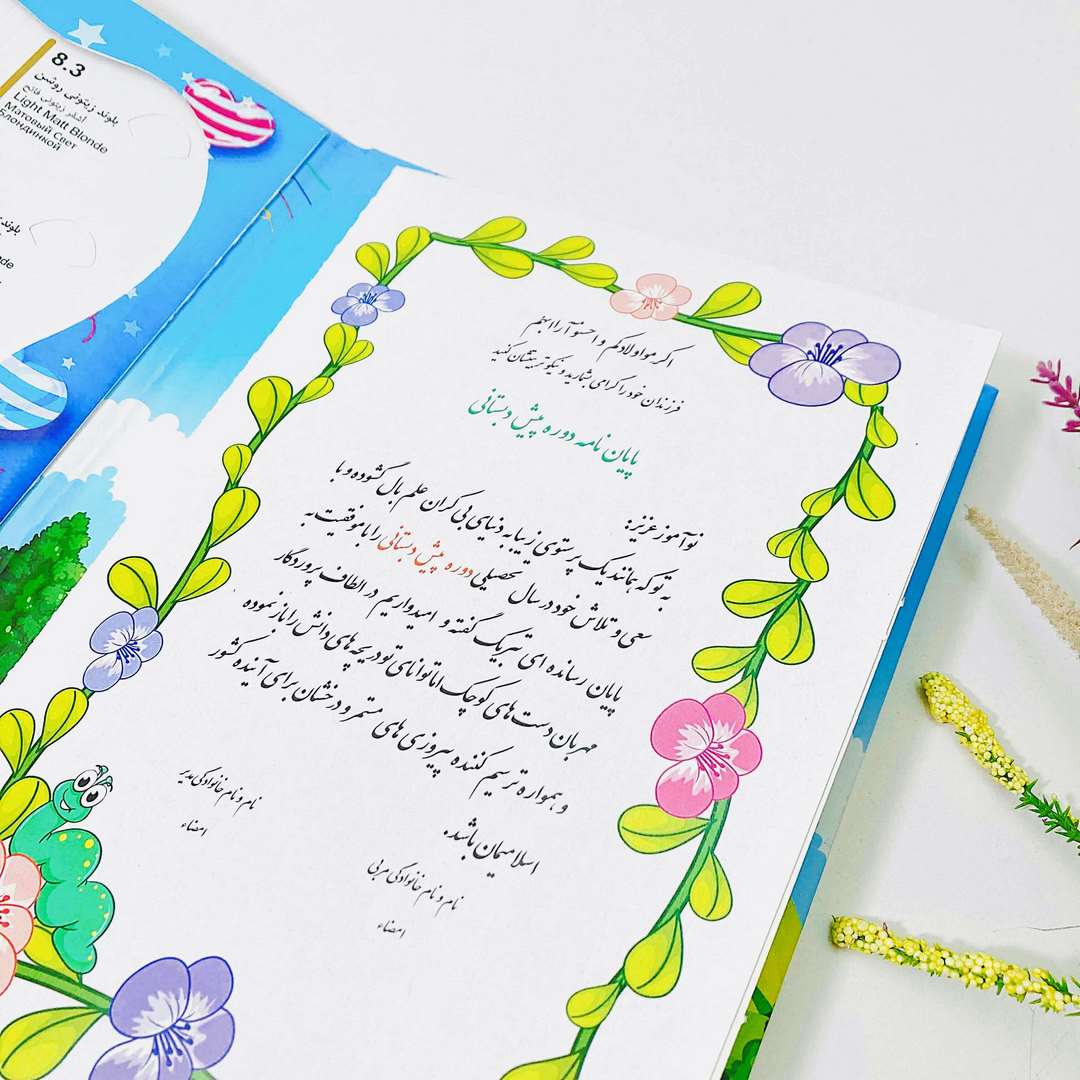 8.3
بلوند زیتونی روشن
أشقر زيتوني فاتح
Light Matt Blonde
Матовый Свет
Блондинкой
بلوند
nde
اکرموا اولادکم و احسنوا آرابهم
فرزندان خود را گرامی بشمارید و نیکو تربیتشان کنید
پایان نامه دوره پیش دبستانی
نوآموز عزیز:
به تو که همانند یک پرستوی زیبا به دنیای بی کران علم بال گشوده و با
سعی و تلاش خود در سال تحصیلی دوره پیش دبستانی را با موفقیت به
پایان رسانده ای تبریک گفته و امیدواریم در الطاف پروردگار
مهربان دست های کوچک اما توانای تو دریچه های دانش را باز نموده
و همواره ترسیم کننده پیروزی های مستمر و درخشان برای آینده کشور
اسلامیمان باشد.
نام و نام خانوادگی مدیر
امضاء
نام و نام خانوادگی مربی
امضاء